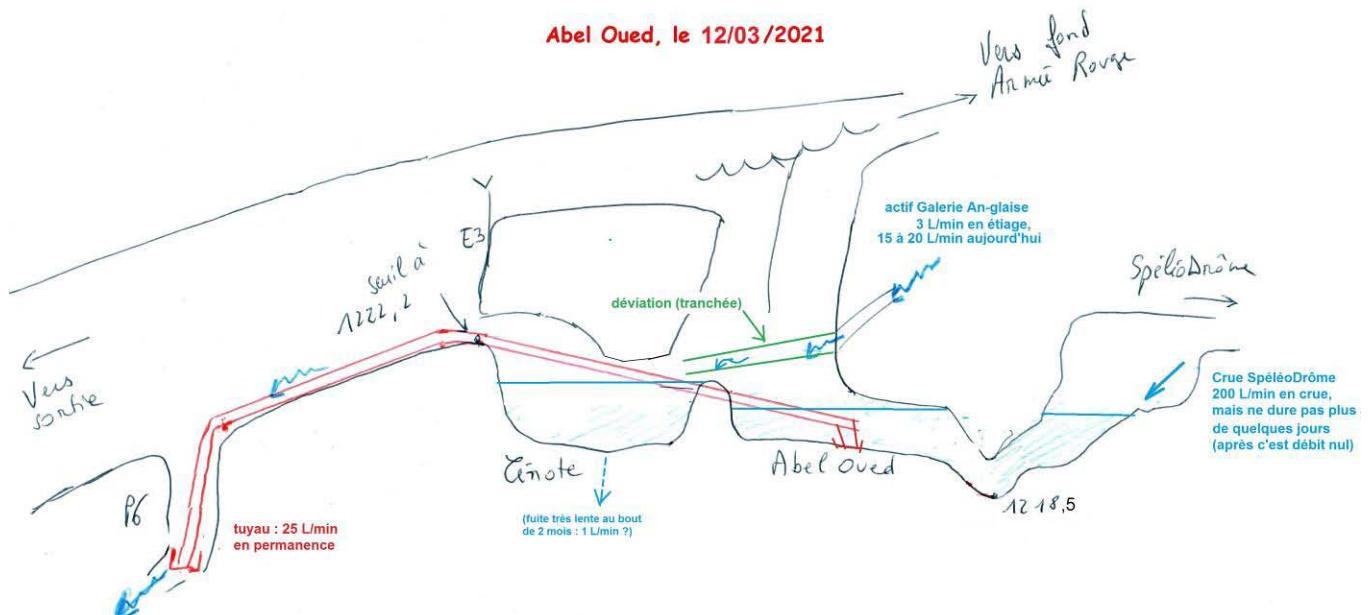 Abel Oued, le 12/03/2021
Vers fond
Armée Rouge
E3
seuil à
1222,2
actif Galerie An-glaise
3 L/min en étiage,
15 à 20 L/min aujourd'hui
SpéléoDrôme
déviation (tranchée)
Vers
sortie
Crue SpéléoDrôme
200 L/min en crue,
mais ne dure pas plus
de quelques jours
(après c'est débit nul)
Cénote
Abel Oued
P6
1218,5
tuyau : 25 L/min
en permanence
(fuite très lente au bout
de 2 mois : 1 L/min ?)